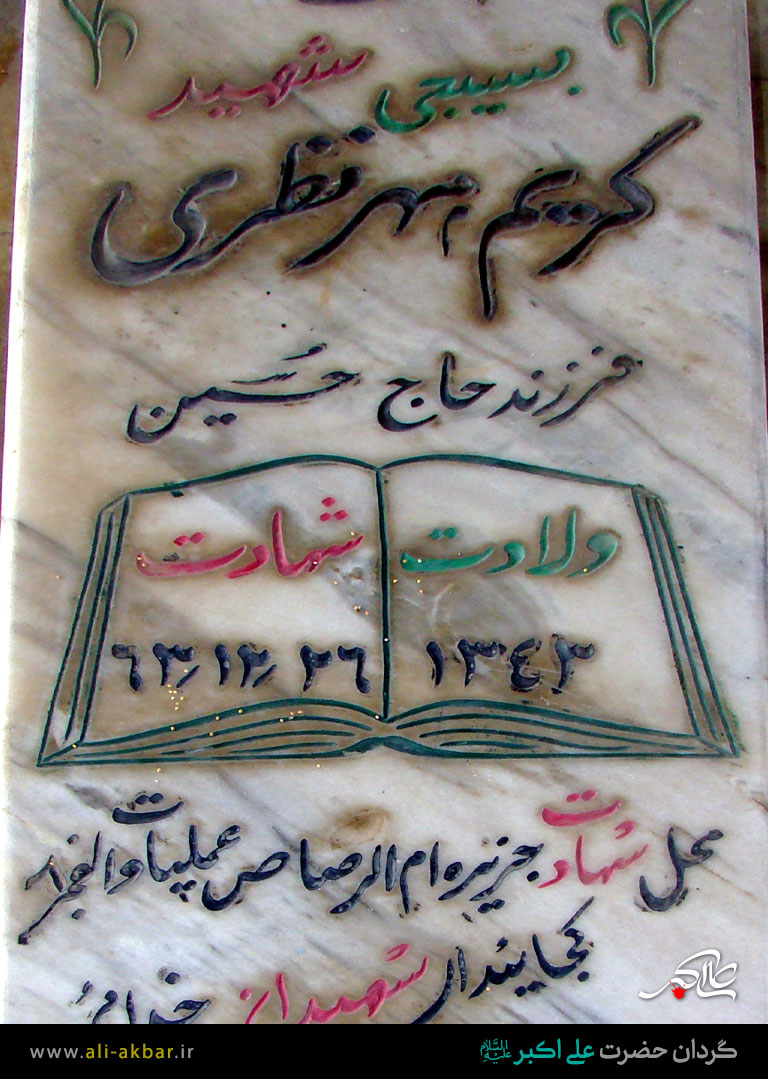 بسیجی شهید
کریم مهر نظری
فرزند حاج حسین
ولادت شهادت
۱۳۴۳ ۶۳٫۱۲٫۲۶
محل شهادت جزیره ام الرصاص عملیات والفجر ۸
کجایند شهیدان خدایی
علی اکبر
www.ali-akbar.ir گردان حضرت علی اکبر علیه السلام